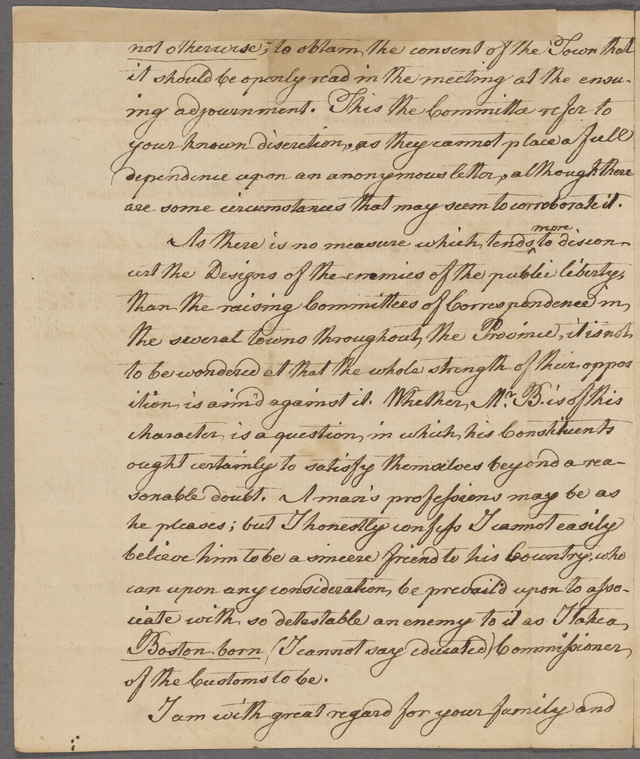 not otherwise; to obtain the consent of the Town that
it should be openly read in the meeting at the ensu-
ing adjournment. This the Committee refer to
your known discretion, as they cannot place a full
dependence upon an anonymous letter, although there
are some circumstances that may seem to corroborate it.
As there is no measure which tends more to discon-
cert the Designs of the enemies of the public liberty,
than the raising Committees of Correspondence in
the several towns throughout the Province, it is not
to be wondered at that the whole strength of their oppos
ition is aim'd against it. Whether Mr. B. is of this
character is a question in which his Constituents
ought certainly to satisfy themselves beyond a rea-
sonable doubt. A man's professions may be as
he pleases; but I honestly confess I cannot easily
believe him to be a sincere friend to his Country, who
can upon any consideration be prevail'd upon to asso-
ciate with so detestable an enemy to it as I take a
Boston born (I cannot say educated) Commissioner
of the Customs to be.
I am with great regard for your family and